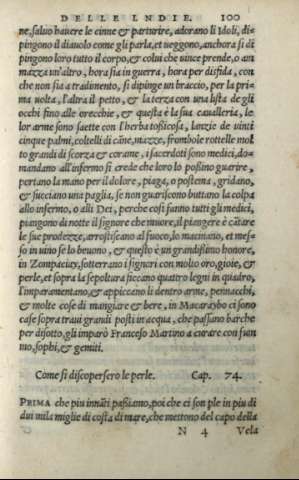 DELLE INDIE. 100
ne, saluo hauere le cinne & parturire, adorano li Idoli, di
pingono il diauolo come gli parla, et ueggono, anchora si di
pingono loro tutto il corpo, & colui che uince prende, o am
mazza un'altro, hora sia in guerra, hora per disfida, con
che non sia a tradimento, si dipinge un braccio, per la pri
ma uolta, l'altra il petto, & la terza con una lista de gli
occhi fino alle orecchie, & questa è la sua caualleria, le
lor arme sono saette con l'herba tossicosa, lanzie de uinti
cinque palmi, coltelli di cãne, mazze, frombole rottelle mol
to grandi di scorza & corame, i sacerdoti sono medici, do=
mandano all'infermo si crede che loro lo possino guarire,
portano la mano per il dolore, piaga, o postema, gridano,
& succiano una paglia, se non guariscono buttano la colpa
allo infermo, o alli Dei, perche cosi fanno tutti gli medici,
piangono di notte il signore che muore, il piangere è cãtare
le sue prodezze, arrostiscano al fuoco, lo macinano, et mes=
so in uino se lo beuono, & questo è un grandissimo honore,
in Zompaciay, sotterano i signori con molto oro, gioie, &
perle, et sopra la sepoltura ficcano quattro legni in quadro,
l'imparamentano, & appiccano li dentro arme, pernacchi,
& molte cose di mangiare & bere, in Macarabo ci sono
case sopra traui grandi posti in acqua, che passano barche
per disotto, gli imparò Francesco Martino a curare con fum
mo, sophi, & gemiti.
Come si discopersero le perle. Cap. 74.
PRIMA che piu innãti passiamo, poi che ci son ple in piu di
dui mila miglie di costa di mare, che mettono del capo della
N 4 Vela